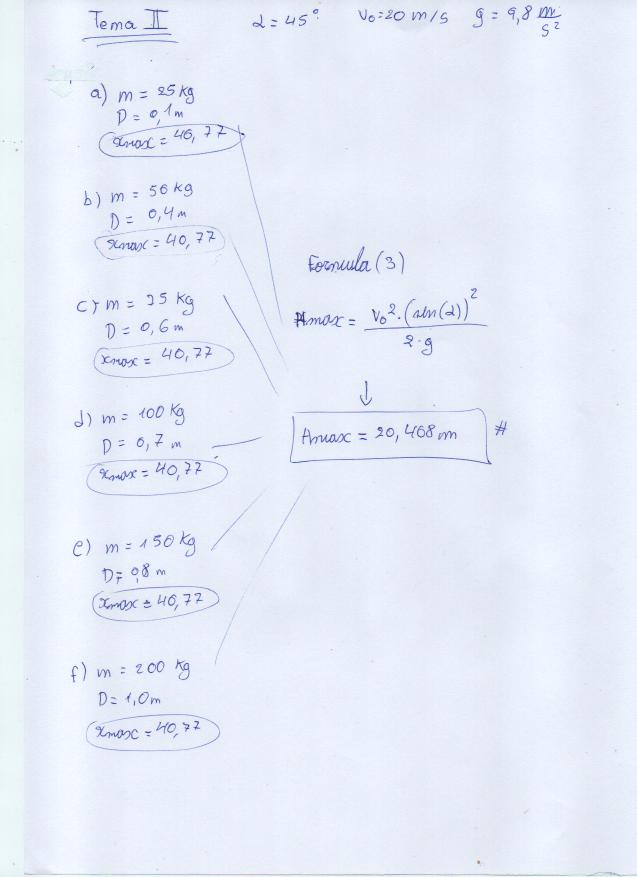 Tema II
α = 45° V₀ = 20 m/s g = 9,8 m/s²
a) m = 25 kg
D = 0,1 m
xmax = 40,77
b) m = 50 kg
D = 0,4 m
xmax = 40,77
c) m = 75 kg
D = 0,6 m
xmax = 40,77
d) m = 100 kg
D = 0,7 m
xmax = 40,77
e) m = 150 kg
D = 0,8 m
xmax = 40,77
f) m = 200 kg
D = 1,0 m
xmax = 40,77
Formula (3)
Amax = V₀² · (sen(α))² / 2·g
↓
Amax = 20,408 m #